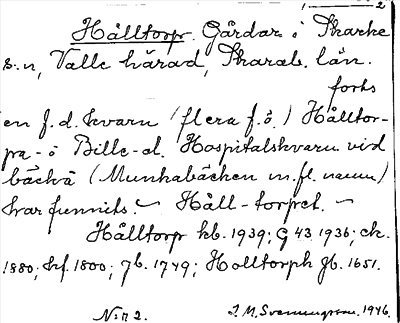 2
Hålltorp. Gårdar i Skarke
s:n, Valle härad, Skarab. län.
forts
en f.d. kvarn (flera f.ö.) Hålltor-
pa- ö Bille- el. Hospitalskvarn vid
bäckå (Munkabäcken m.fl. namn)
har funnits. ~ Håll-torpet. ~
Hålltorp kb. 1939; G 43 1936; ek.
1880; hf. 1800; jb. 1749; Holltorph jb. 1651.
N:r 2. J. M. Svenungsson. 1946.